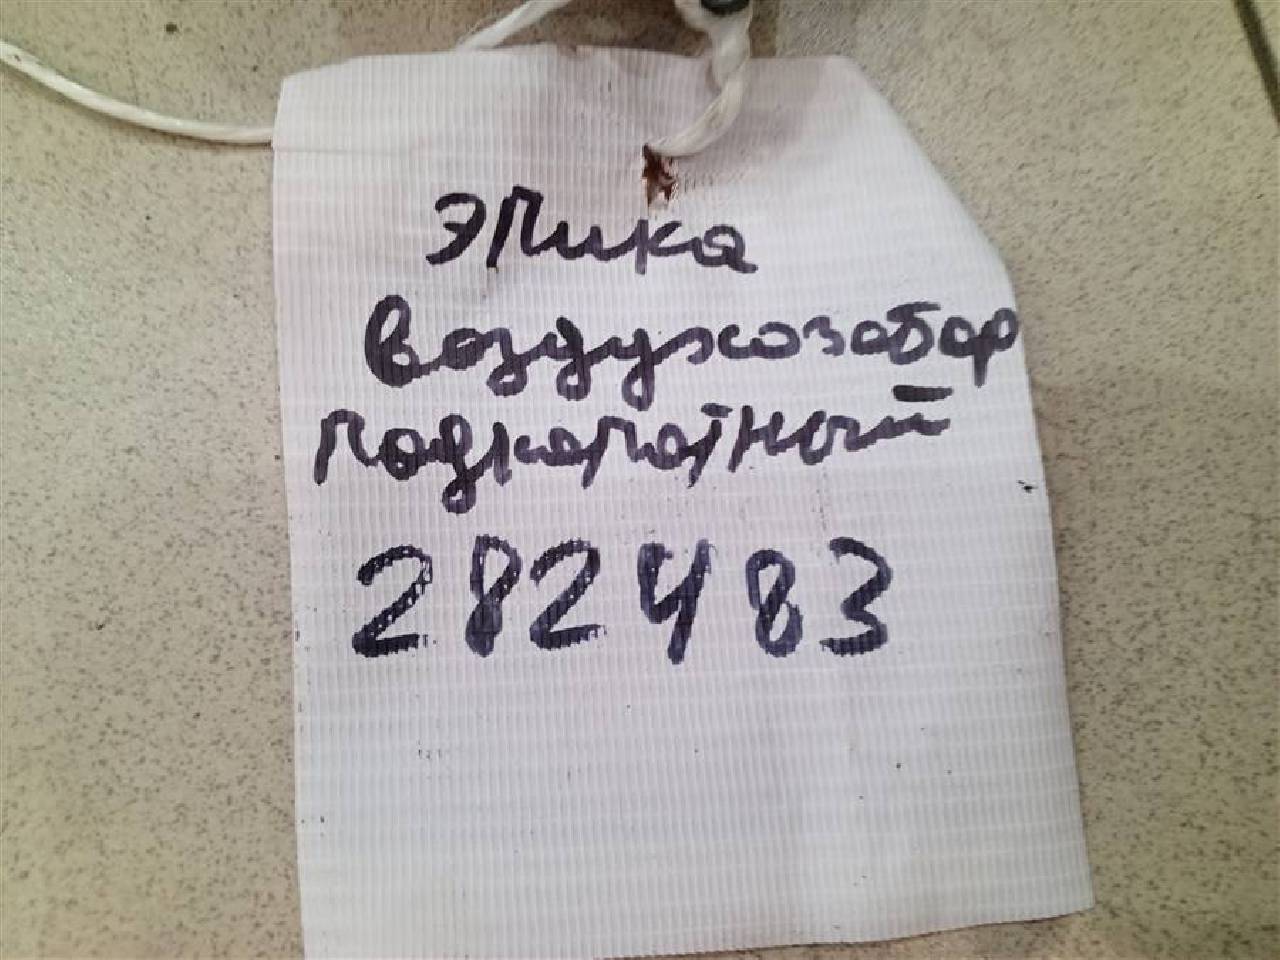 Эпика
воздухозабор
подкапотный
282483